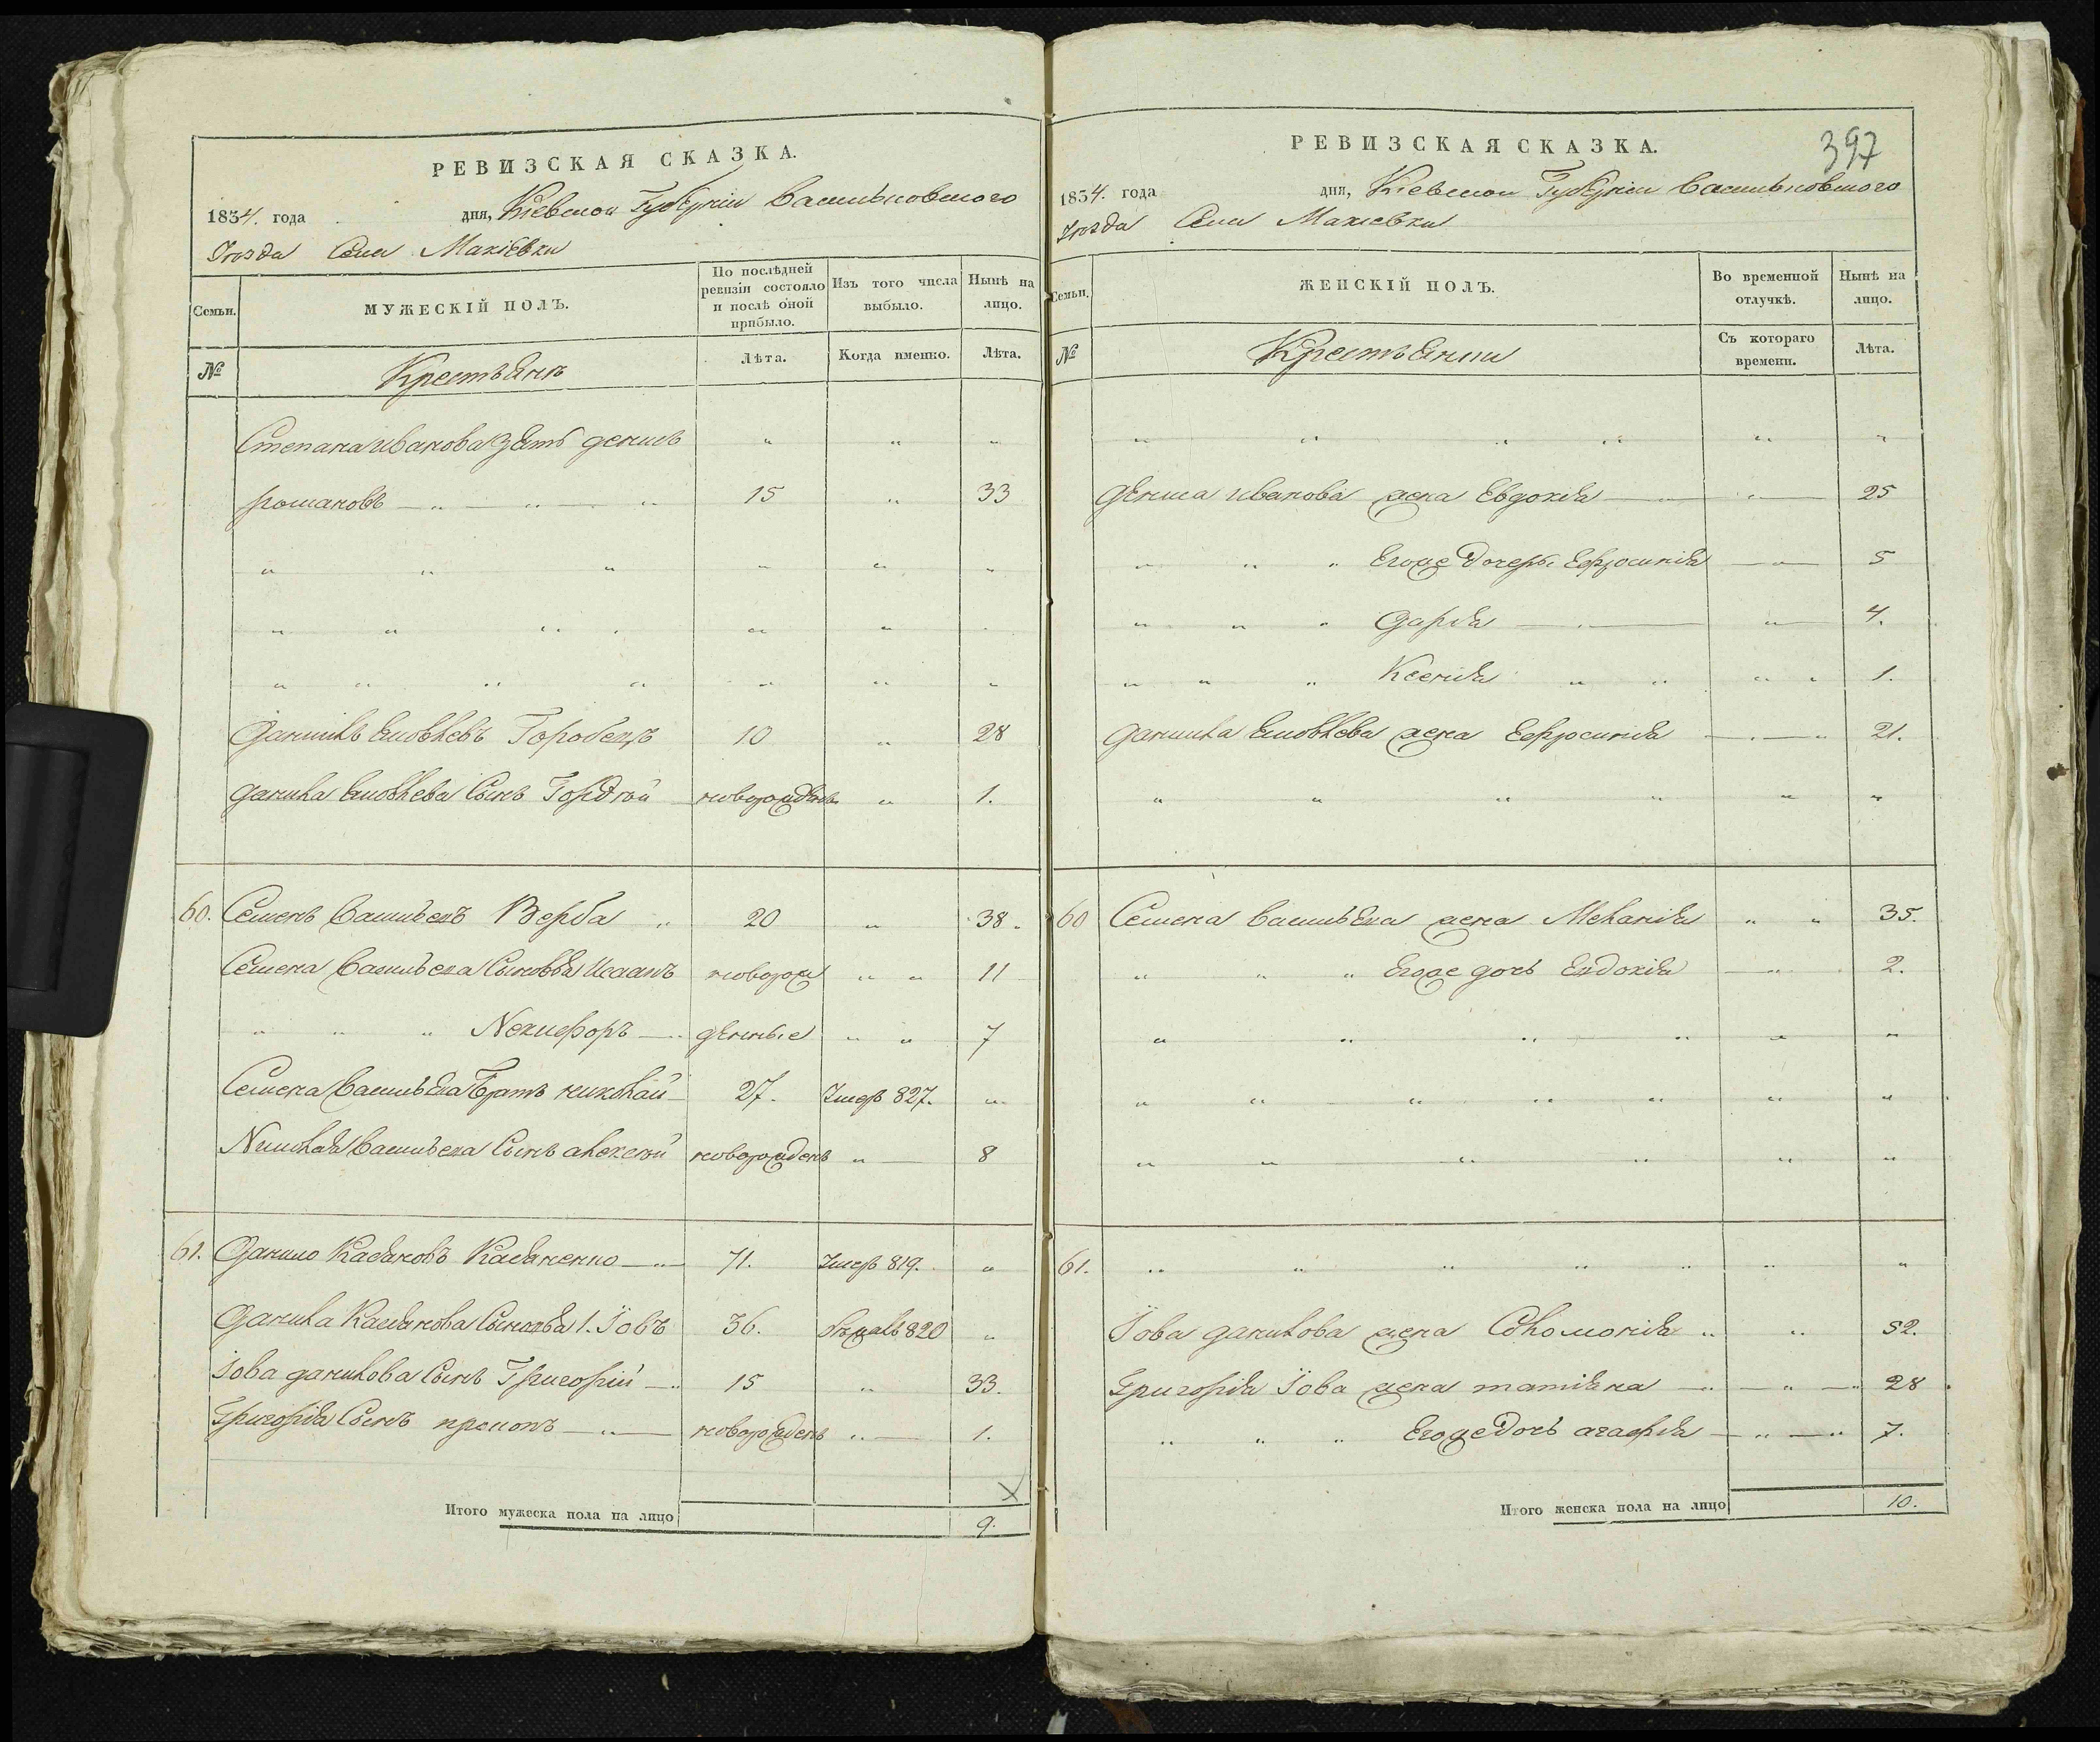 РЕВИЗСКАЯ СКАЗКА.
1834. года дня, Кіевской Губерніи Васильковского
Уѣзда Села Макіевки
Семьи. МУЖЕСКІЙ ПОЛЪ. По послѣдней ревизіи состояло и послѣ оной прибыло. Изъ того числа выбыло. Нынѣ на лицо.
№ Крестьянъ Лѣта. Когда именно. Лѣта.
Степана Иванова зять денисъ " " "
романовъ 15 " 33
" " " " " "
" " " " " "
" " " " " "
Данило Яковлевъ Горобецъ 10 " 28
данила Яковлева Сынъ Гордѣй новорожденъ " 1.
60. Семенъ Васильевъ Верба " 20 " 38.
Семена Васильева Сыновья Исаакъ новорож " " 11
" " " Никифоръ денные " " 7
Семена Васильева Братъ николай 27. Умеръ 827. "
Николая Васильева Сынъ алексей новорожденъ " 8
61. Данило Касьяновъ Касьяненко 71. Умеръ 819. "
Данила Касьянова Сыновья 1. Іовъ 36. 820 "
Іова данилова Сынъ Григорій 15 " 33.
Григорія Сынъ прокопъ новорожденъ " 1.
Х
Итого мужеска пола на лицо 9.
397
РЕВИЗСКАЯ СКАЗКА.
1834. года дня, Кіевской Губерніи Васильковского
Уѣзда Села Макіевки
Семьи. ЖЕНСКІЙ ПОЛЪ. Во временной отлучкѣ. Нынѣ на лицо.
№ Крестьянки Съ котораго времени. Лѣта.
" " " " " "
дениса иванова жена Евдокія " 25
" " " Егоже дочеры Ефросинія " 5
" " " дарія " 4.
" " " Ксенія " " " " 1.
данила Яковлева жена Ефросинія " 21.
" " " " " "
60 Семена Васильева жена Меланія " " 35.
" " " Егоже дочь Евдокія " 2.
" " " " " "
" " " " " " "
" " " " " "
61. " " " " " " "
Іова данилова жена Соломонія " " 52.
Григорія Іова жена татіяна " " 28
" " " Егоже дочь агафія " " 7.
Итого женска пола на лицо 10.